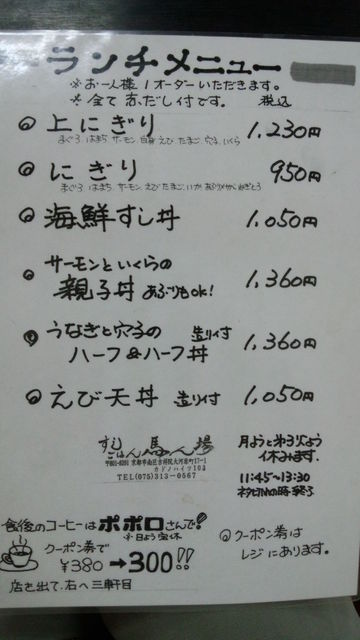 ランチメニュー
※お一人様1オーダーいただきます。
※全て赤だし付です。 税込
上にぎり 1,230円
まぐろ はまち サーモン 白身 えび たまご 穴子 いくら
にぎり 950円
まぐろ はまち サーモン えび たまご いか
海鮮すし丼 1,050円
サーモンといくらの
親子丼 あぶりもOK! 1,360円
うなぎと穴子の 造り付
ハーフ&ハーフ丼 1,360円
えび天丼 造り付 1,050円
すし
ごはん 馬ん場
京都市南区吉祥院大河原町17-1
カドノハイツ103
TEL(075)313-0567
月ようと第3日よう
休みます。
11:45~13:30
ネタ切れの時 終了
食後のコーヒーはポポロさんで!
※日よう定休
クーポン券で
¥380→300!!
店を出て、右へ三軒目
クーポン券は
レジにあります。